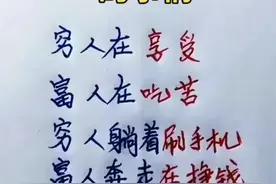 穷人在享受
富人在吃苦
穷人躺着刷手机
富人奔走在挣钱